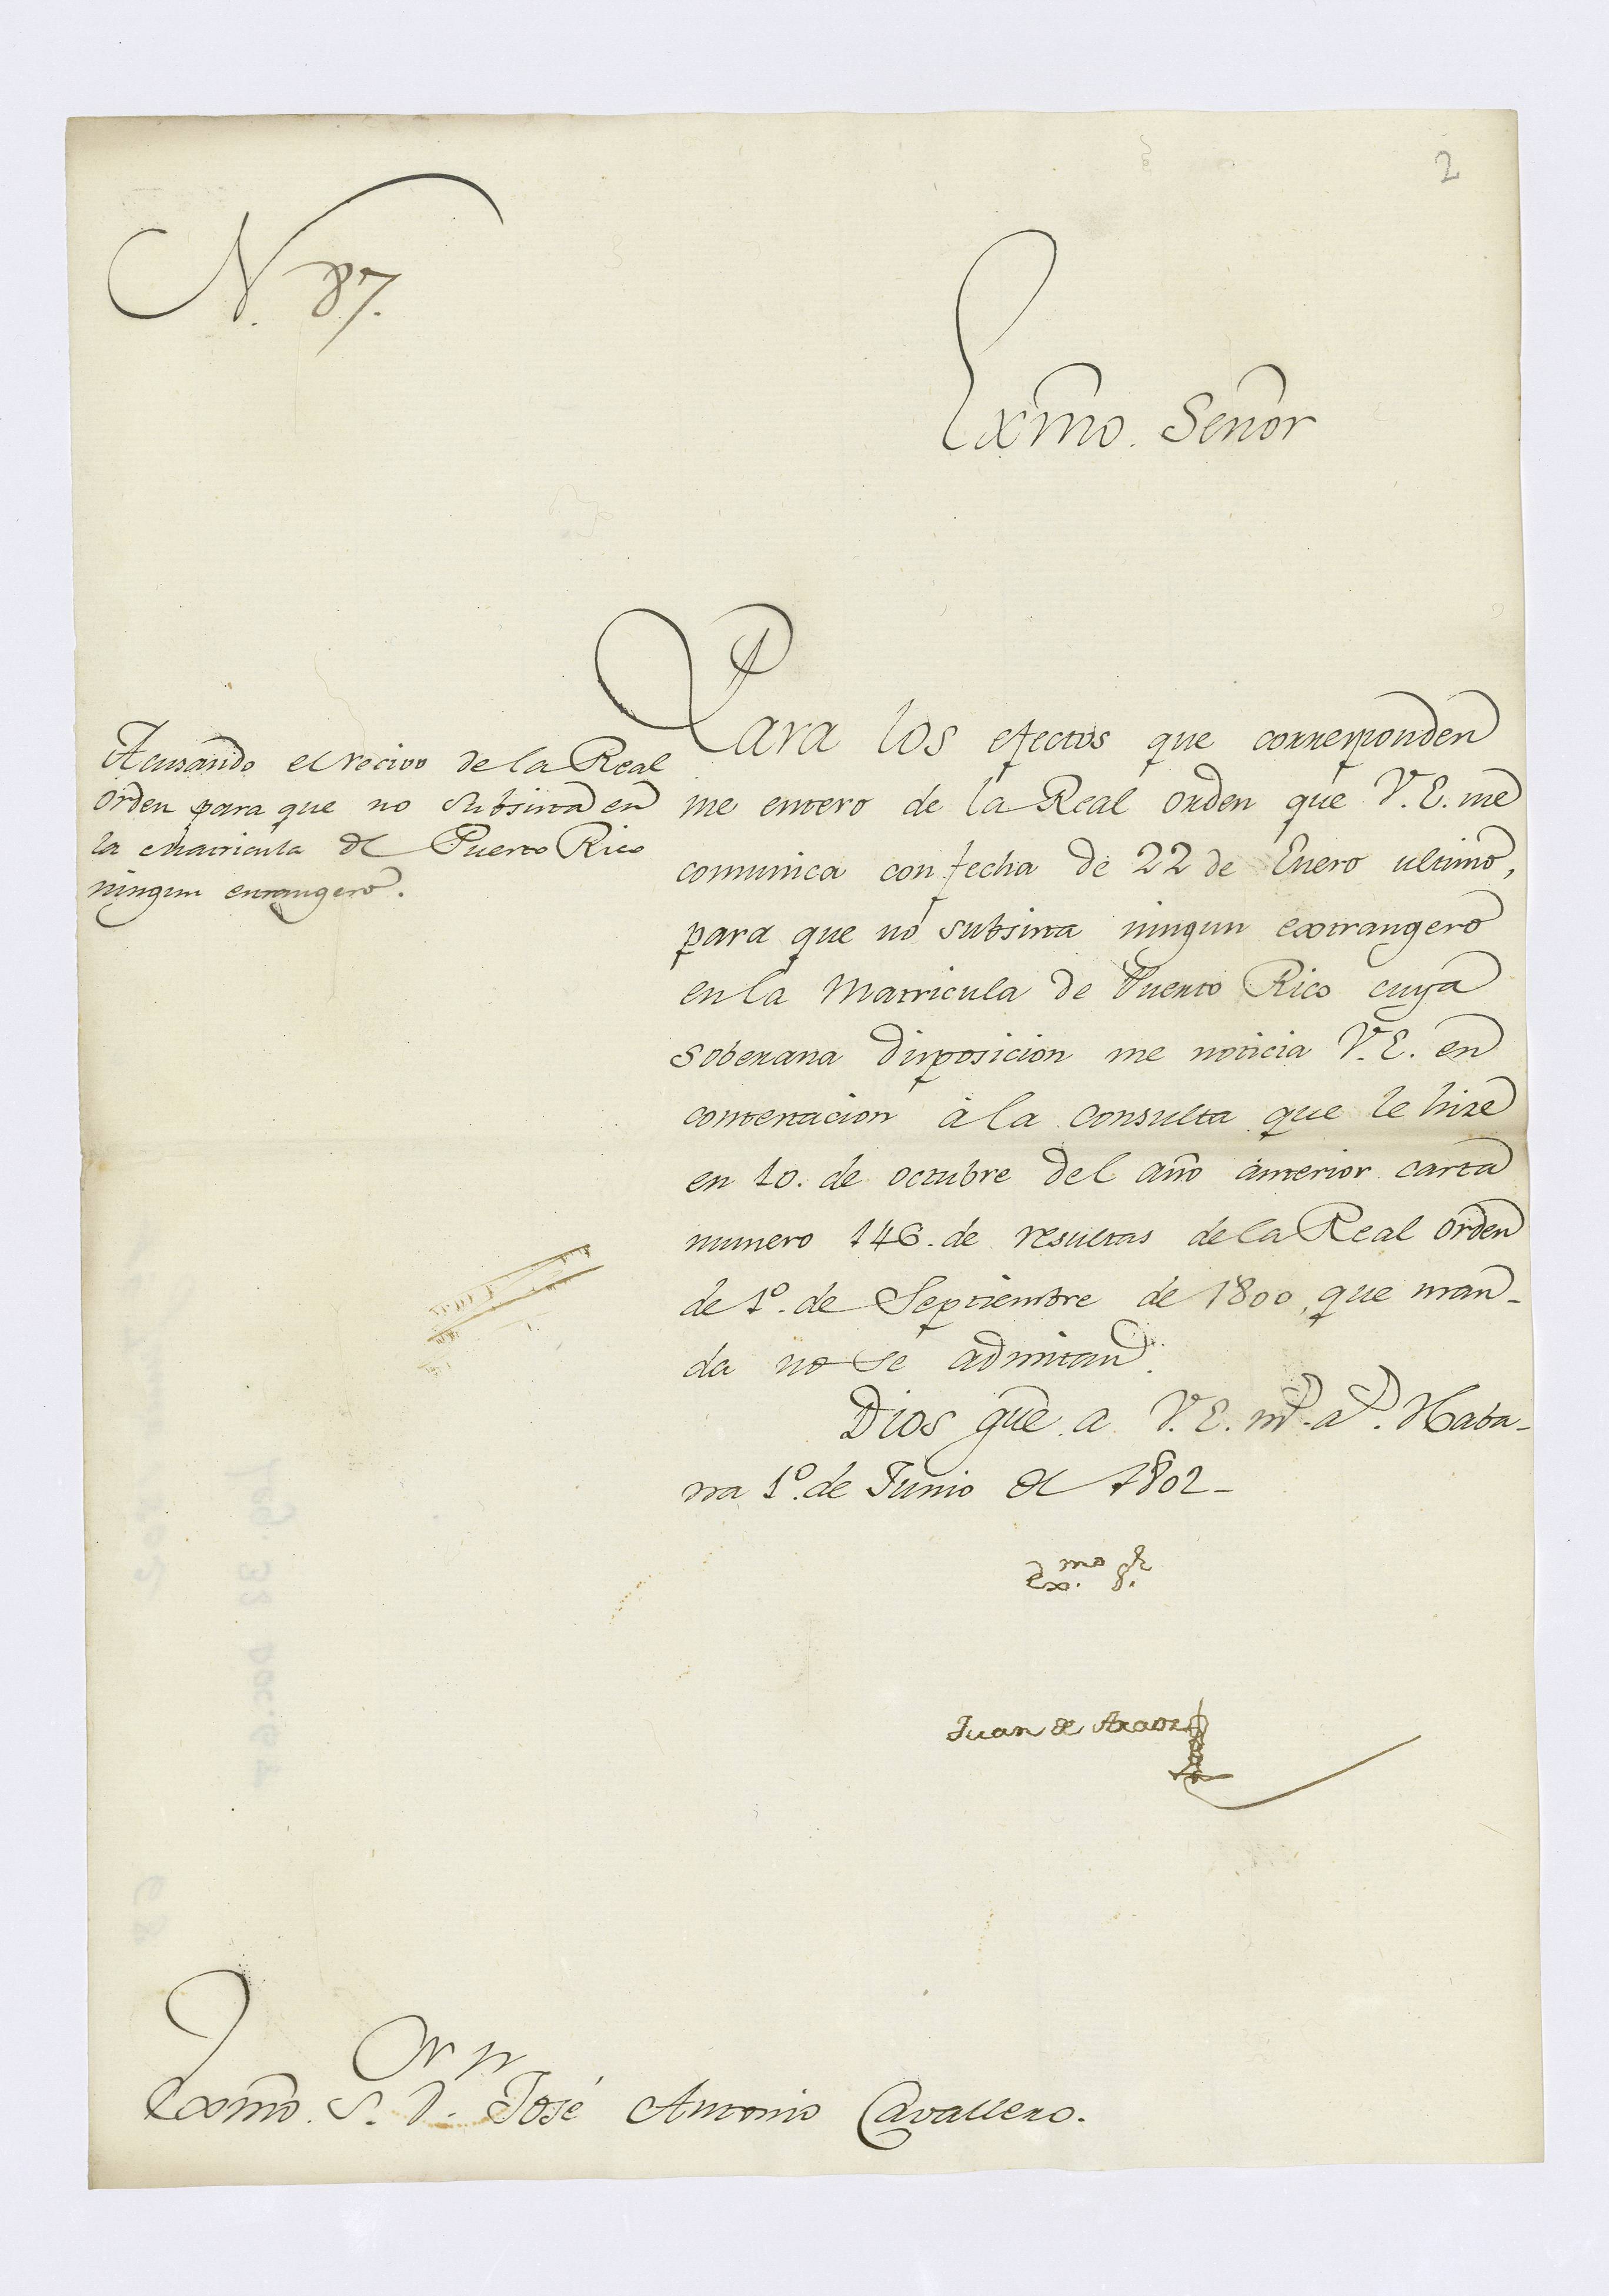 2
N. 87.
Exmo. Señor
Acusando el recivo de la Real
orden para que no subsista en
la Matricula de Puerto Rico
ningun extrangero.
Para los efectos que corresponden
me entero de la Real orden que V.E. me
comunica con fecha de 22 de Enero ultimo,
para que no subsista ningun extrangero
en la Matricula de Puerto Rico cuya
soberana disposicion me noticia V.E. en
contestacion à la consulta que le hize
en 10. de octubre del año anterior carta
numero 146. de resultas de la Real orden
de 1º. de Septiembre de 1800, que man-
da no se admitan.
Dios gue. a V.E. ms. as. Haba-
na 1º. de Junio de 1802-
Exmo. Sr.
Juan de Araoz
Exmo. Sr. Dn. José Antonio Cavallero.